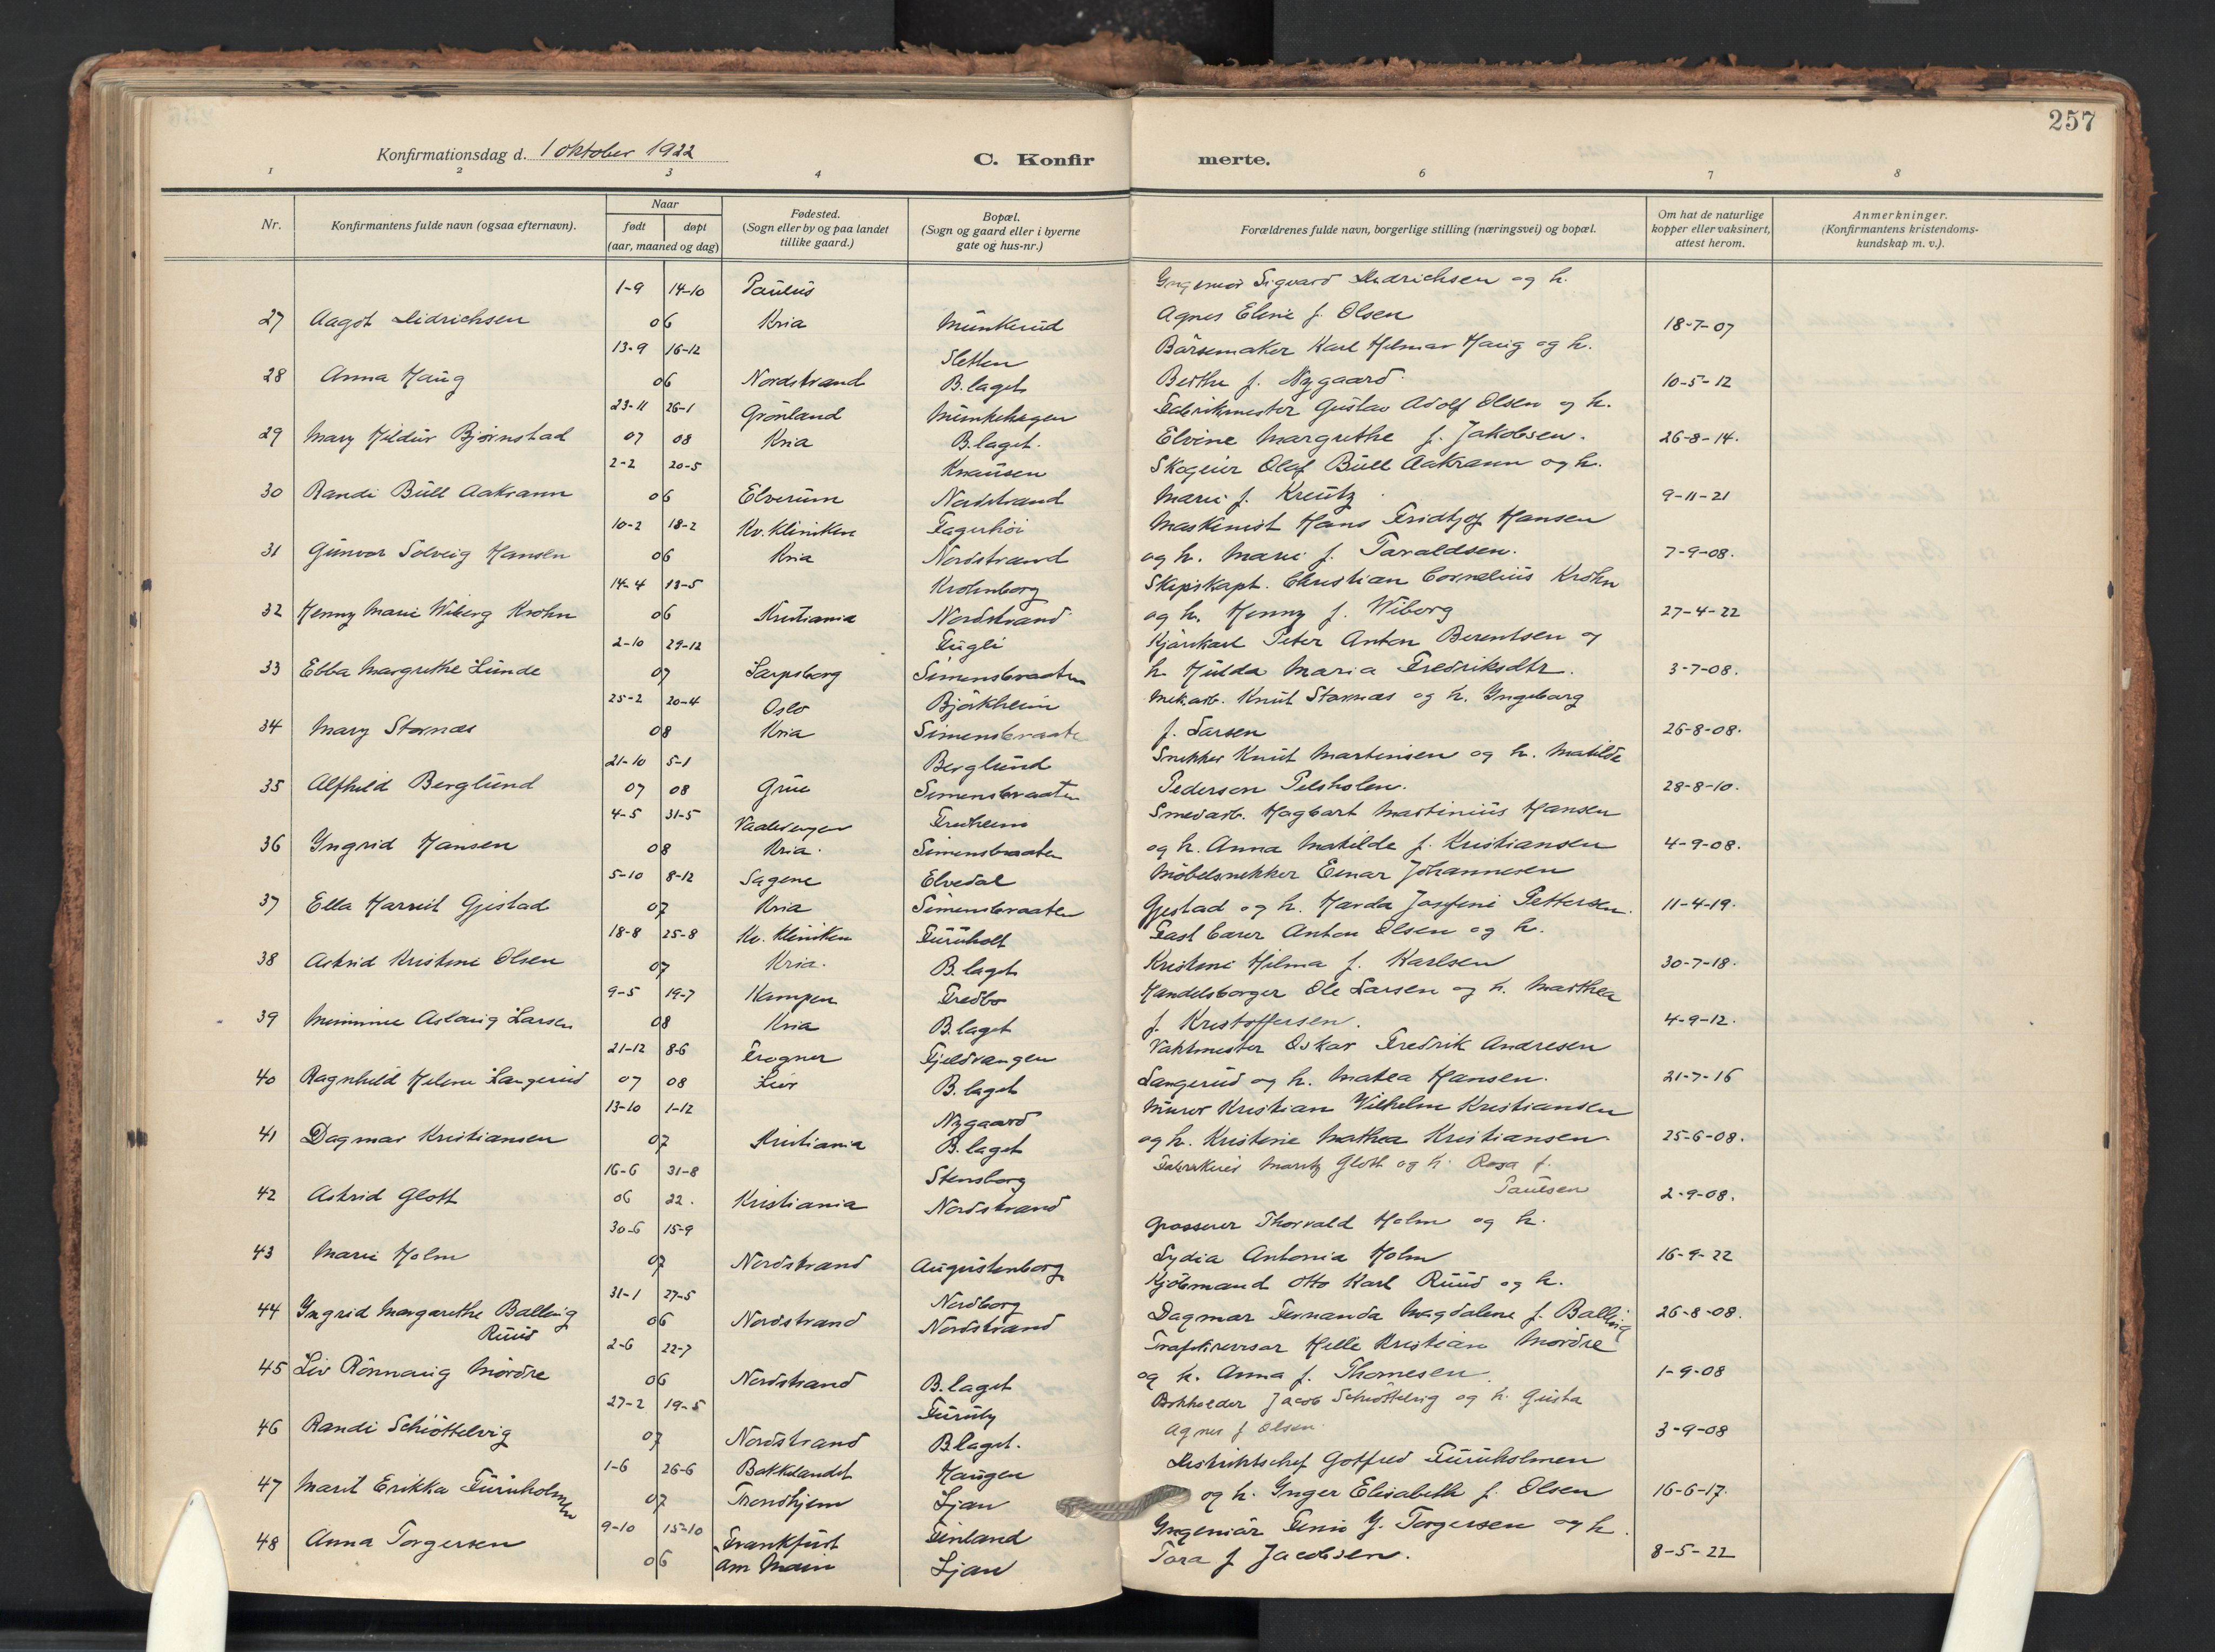 257
Konfirmationsdag d. 1 oktober 1922
C. Konfirmerte.
1 2 3 4 6 7 8
Nr. Konfirmantens fulde navn (ogsaa efternavn). Naar født døpt (aar, maaned og dag) Fødested. (Sogn eller by og paa landet tillike gaard.) Bopæl. (Sogn og gaard eller i byerne gate og hus-nr.) Forældrenes fulde navn, borgerlige stilling (næringsvei) og bopæl. Om hat de naturlige kopper eller vaksinert, attest herom. Anmerkninger. (Konfirmantens kristendoms-kundskap m. v.).
1-9 14-10 Paulus Ingeniør Sigvard Didrichsen og h.
27 Aagot Didrichsen 06 Kria Munkerud Agnes Elene f. Olsen 18-7-07
13-9 16-12 Sletten Børsemaker Karl Hilmar Haug og h.
28 Anna Haug 06 Nordstrand B.laget Berthe f. Nygaard. 10-5-12
23-11 26-1 Grønland Munkehagen Fabrikmester Gustav Adolf Olsen og h.
29 Mary Hildur Bjørnstad 07 08 Kria B.laget. Elvine Margrethe f. Jakobsen. 26-8-14.
2-2 20-5 Knausen Skogeier Olaf Bull Aakrann og h.
30 Randi Bull Aakrann 06 Elverum Nordstrand Marie f. Kreutz. 9-11-21
10-2 18-2 Kv. Kliniken Fagerhøi Maskinist Hans Fridtjof Hansen
31 Gunvor Solveig Hansen 06 Kria Nordstrand og h. Marie f. Taraldsen. 7-9-08.
14-4 13-5 Krohnborg Skipskapt. Christian Cornelius Krohn
32 Henny Marie Wiberg Krohn 06 Kristiania Nordstrand og h. Henny f. Wiborg 27-4-22
2-10 29-12 Fugli Kjørekarl Peter Anton Berentsen og
33 Ebba Margrethe Lunde 07 Sarpsborg Simensbraaten h. Hulda Maria Fredriksdtr. 3-7-08.
25-2 20-4 Oslo Bjørkheim Mek.arb. Knut Stornæs og h. Ingeborg
34 Mary Stornæs 08 Kria Simensbraate f. Larsen 26-8-08.
21-10 5-1 Berglund Snekker Knut Martinsen og h. Matilde
35 Alfhild Berglund 07 08 Grue Simensbraaten Pederson Pelsholen. 28-8-10.
4-5 31-5 Vaalerengen Fredheim Smedarb. Hagbart Martinius Hansen
36 Yngrid Hansen 08 Kria. Simensbraaten og h. Anna Matilde f. Kristiansen 4-9-08.
5-10 8-12 Sagene Elvedal Møbelsnekker Einar Johannesen
37 Ella Harriet Gjestad 07 Kria Simensbraaten Gjestad og h. Harda Josefine Pettersen. 11-4-19.
18-8 25-8 Kv. Kliniken Furuholt Anton Olsen og h.
38 Astrid Kristine Olsen 07 Kria. B.laget Kristine Hilma f. Karlsen 30-7-18.
9-5 19-7 Kampen Fredbo Handelsborger Ole Larsen og h. Marthea
39 Mimmie Aslaug Larsen 08 Kria B.laget f. Kristoffersen. 4-9-12.
21-12 8-6 Frogner Fjeldvangen Vaktmester Oskar Fredrik Andresen
40 Ragnhild Helene Langerud 07 08 Lier B.laget Langerud og h. Matea Hansen. 21-7-16
13-10 1-12 Nygaard Murer Kristian Wilhelm Kristiansen
41 Dagmar Kristiansen 07 Kristiania B.laget og h. Kristine Mathea Kristiansen. 25-6-08.
16-6 31-8 Stensborg Fabrikeier Moritz Glott og h. Rosa f.
42 Astrid Glott 06 22. Kristiania Nordstrand Paulsen 2-9-08.
30-6 15-9 Grosserer Thorvald Holm og h.
43 Marie Holm 07 Nordstrand Augustenborg Lydia Antonia Holm 16-9-22
31-1 27-5 Nordborg Kjøbmand Otto Karl Ruud og h.
44 Yngrid Margarethe Balling Ruud 06 Nordstrand Nordstrand Dagmar Fernanda Magdalene f. Balling 26-8-08.
2-6 22-7 Helle Kristian Mørdre
45 Liv Rønnaug Mørdre 06 Nordstrand B.laget og h. Anna f. Thomesen. 1-9-08
27-2 19-5 Furuly Bokholder Jacob Schiøttelvig og h. Gusta
46 Randi Schiøttelvig 07 Nordstrand B.laget. Agnes f Olsen. 3-9-08
1-6 26-6 Bakkelandet Haugen Distriktschef Gotfred Furuholmen
47 Marit Erikka Furuholmen 07 Trondhjem Ljan og h. Inger Elisabeth f. Olsen 16-6-17.
9-10 15-10 Frankfurt Finland Ingeniør Y. Torgersen og h.
48 Anna Torgersen 06 am Main Ljan Tora f Jacobsen. 8-5-22